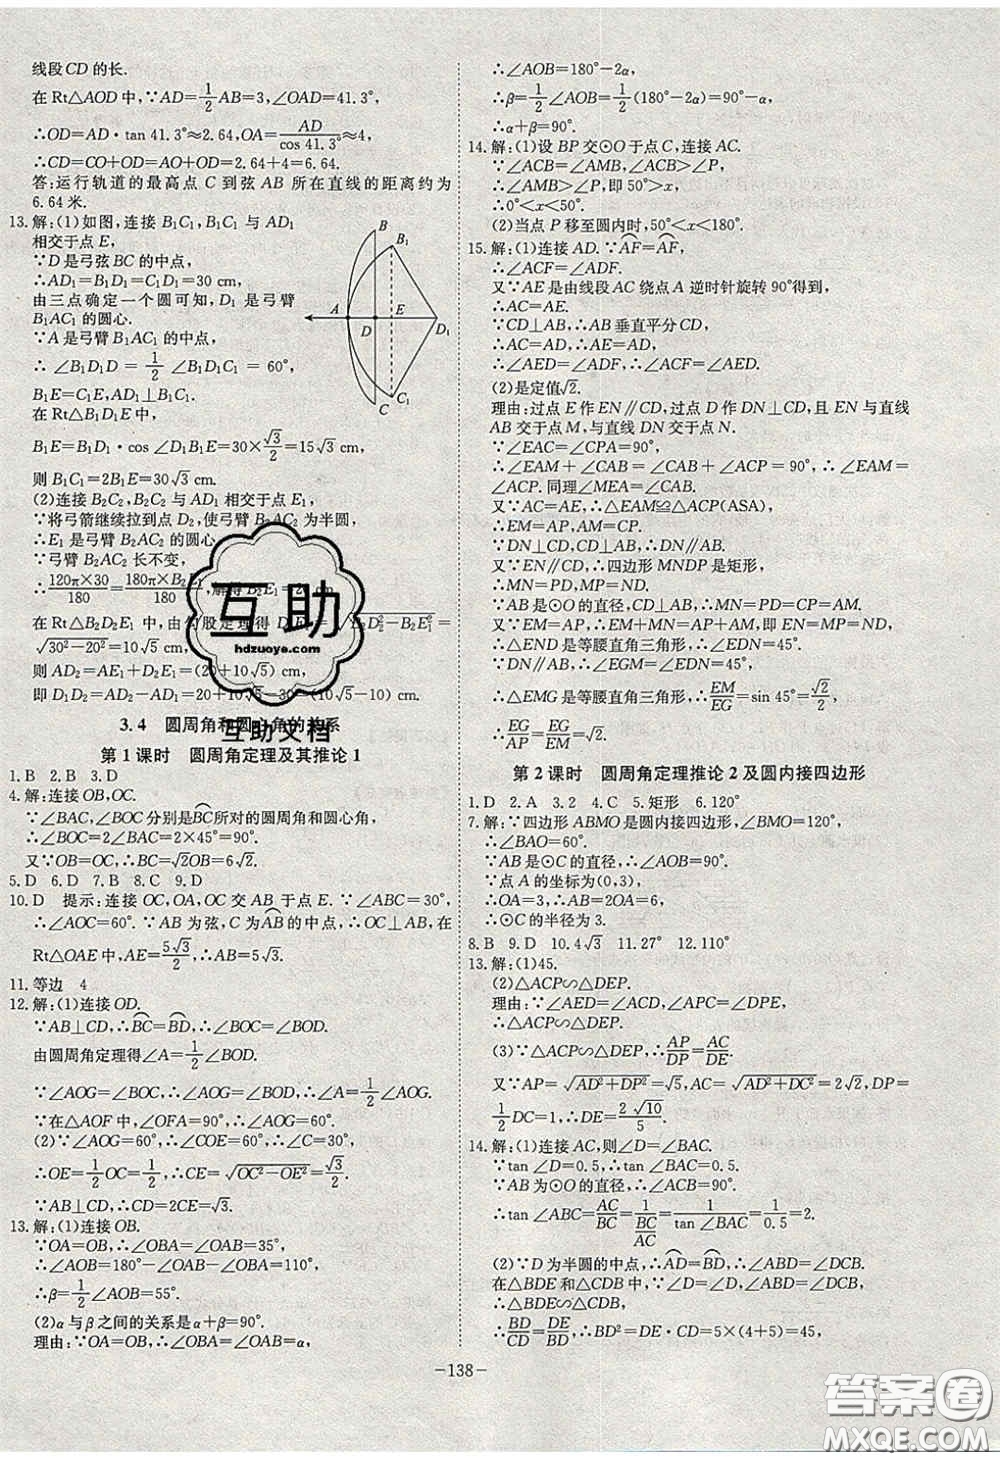 线段CD的长.
在Rt△AOD中,∵AD=1/2AB=3,∠OAD=41.3°,
∴OD=AD·tan 41.3°≈2.64,OA=AD/cos 41.3°≈4,
∴CD=CO+OD=AO+OD=2.64+4=6.64.
答:运行轨道的最高点 C 到弦 AB 所在直线的距离约为
6.64米.
13.解:(1)如图,连接 B₁C₁,B₁C₁ 与 AD₁
相交于点E,
∵D是弓弦BC的中点,
∴AD₁=B₁D₁=C₁D₁=30 cm,
由三点确定一个圆可知,D₁是弓臂
B₁AC₁的圆心.
∵A是弓臂B₁AC₁的中点,
∴∠B₁D₁D=1/2∠B₁D₁C₁=60°,
B₁E=C₁E,AD₁⊥B₁C₁.
在Rt△B₁D₁E中,
B₁E=B₁D₁·cos ∠D₁B₁E=30×√3/2=15√3 cm,
则B₁C₁=2B₁E=30√3 cm.
B
B₁
A
D
E
D₁
C₁
C
(2)连接B₂C₂,B₂C₂与AD₁相交于点E₁,
∵将弓箭继续拉到点D₂,使弓臂B₂AC₂为半圆,
∴E₁是弓臂B₂AC₂的圆心.
∵弓臂B₂AC₂长不变,
∴120π×30/180=180π×B₂E₁/180,解得B₂E₁=20 cm,
在Rt△B₂D₂E₁中,由勾股定理得D₂E₁=√(B₂D₂²−B₂E₁²)=
√(30²−20²)=10√5 cm,
则AD₂=AE₁+D₂E₁=(20+10√5)cm,
即D₁D₂=AD₂−AD₁=20+10√5−30=(10√5−10) cm.
3.4 圆周角和圆心角的关系
第1课时 圆周角定理及其推论1
1.B 2.B 3.D
4.解:连接OB,OC.
∵∠BAC,∠BOC分别是BC所对的圆周角和圆心角,
∴∠BOC=2∠BAC=2×45°=90°.
又∵OB=OC,∴BC=√2OB=6√2.
5.D 6.D 7.B 8.C 9.D
10.D 提示:连接OC,OA,OC交AB于点E.∵∠ABC=30°,
∴∠AOC=60°.∵AB为弦,C为AB的中点,∴OC⊥AB,在
Rt△OAE中,AE=5√3/2,∴AB=5√3.
11.等边 4
12.解:(1)连接OD.
∵AB⊥CD,∴BC=BD,∴∠BOC=∠BOD.
由圆周角定理得∠A=1/2∠BOD.
∵∠AOG=∠BOC,∴∠AOG=∠BOD,∴∠A=1/2∠AOG.
∵在△AOF中,∠OFA=90°,∴∠AOG=60°.
(2)∵∠AOG=60°,∴∠COE=60°,∴∠C=30°.
∴OE=1/2OC=1/2,∴CE=√(OC²−OE²)=√3/2.
∵AB⊥CD,∴CD=2CE=√3.
13.解:(1)连接OB.
∵OA=OB,∴∠OBA=∠OAB=35°,
∴∠AOB=180°−∠OAB−∠OBA=110°,
∴β=1/2∠AOB=55°.
(2)α与β之间的关系是α+β=90°.
理由:∵OA=OB,∴∠OBA=∠OAB=α,
∴∠AOB=180°−2α,
∴β=1/2∠AOB=1/2(180°−2α)=90°−α,
∴α+β=90°.
14.解:(1)设BP交⊙O于点C,连接AC.
∵∠ACB=∠AMB,∠ACB>∠P,
∴∠AMB>∠P,即50°>x°,
∴0°<x<50°.
(2)当点P移至圆内时,50°<x<180°.
15.解:(1)连接AD.∵AF=AF,
∴∠ACF=∠ADF.
又∵AE是由线段AC绕点A逆时针旋转90°得到,
∴AC=AE.
∵CD⊥AB,∴AB垂直平分CD,
∴AC=AD,∴AE=AD,
∴∠AED=∠ADF,∴∠ACF=∠AED.
(2)是定值√2.
理由:过点E作EN∥CD,过点D作DN⊥CD,且EN与直线
AB交于点M,与直线DN交于点N.
∵∠EAC=∠CPA=90°,
∴∠EAM+∠CAB=∠CAB+∠ACP=90°,∴∠EAM=
∠ACP.同理∠MEA=∠CAP.
又∵AC=AE,∴△EAM≌△ACP(ASA),
∴EM=AP,AM=CP.
∵DN⊥CD,CD⊥AB,∴DN∥AB.
又∵EN∥CD,∴四边形MNDP是矩形,
∴MN=PD,MP=DN.
∵AB是⊙O的直径,CD⊥AB,∴MN=PD=CP=AM.
又∵EM=AP,∴EM+MN=AM+AP,即EN=MP=DN,
∴△END是等腰直角三角形,
∴∠NDE=45°,∴∠EGM=∠EDN=45°,
∴△EMG是等腰直角三角形,∴EM/EG=sin 45°=√2/2,
∴EG/AP=EG/EM=√2.
第2课时 圆周角定理推论2及圆内接四边形
1.D 2.A 3.2 4.C 5.矩形 6.120°
7.解:∵四边形ABMO是圆内接四边形,∠BMO=120°,
∴∠BAO=60°.
∵AB是⊙C的直径,∴∠AOB=90°.
∵点A的坐标为(0,3),
∴OA=3,∴AB=2OA=6,
∴⊙C的半径为3.
8.B 9.D 10.4√3 11.27° 12.110°
13.解:(1)45.
(2)△ACP∽△DEP.
理由:∵∠AED=∠ACD,∠APC=∠DPE,
∴△ACP∽△DEP.
(3)∵△ACP∽△DEP,∴AP/DP=AC/DE.
又∵AP=√(AD²+DP²)=√5,AC=√(AD²+DC²)=2√2,DP=
1/2DC=1,∴DE=2√10/5.
14.解:(1)连接AC,则∠D=∠BAC.
∵tan ∠D=0.5,∴tan ∠BAC=0.5.
∵AB为⊙O的直径,∴∠ACB=90°.
∴tan ∠ABC=AC/BC=1/(BC/AC)=1/tan ∠BAC=1/0.5=2.
(2)∵D为半圆的中点,∴AD=BD,∴∠ABD=∠DCB.
在△BDE和△CDB中,∵∠BDE=∠CDB,∠ABD=∠DCB,
∴△BDE∽△CDB,
∴BD/CD=DE/BD,∴BD²=DE·CD=5×(4+5)=45,
−138−
互助
hdzuoye.com
互助文档
答案圈
MXQE.COM